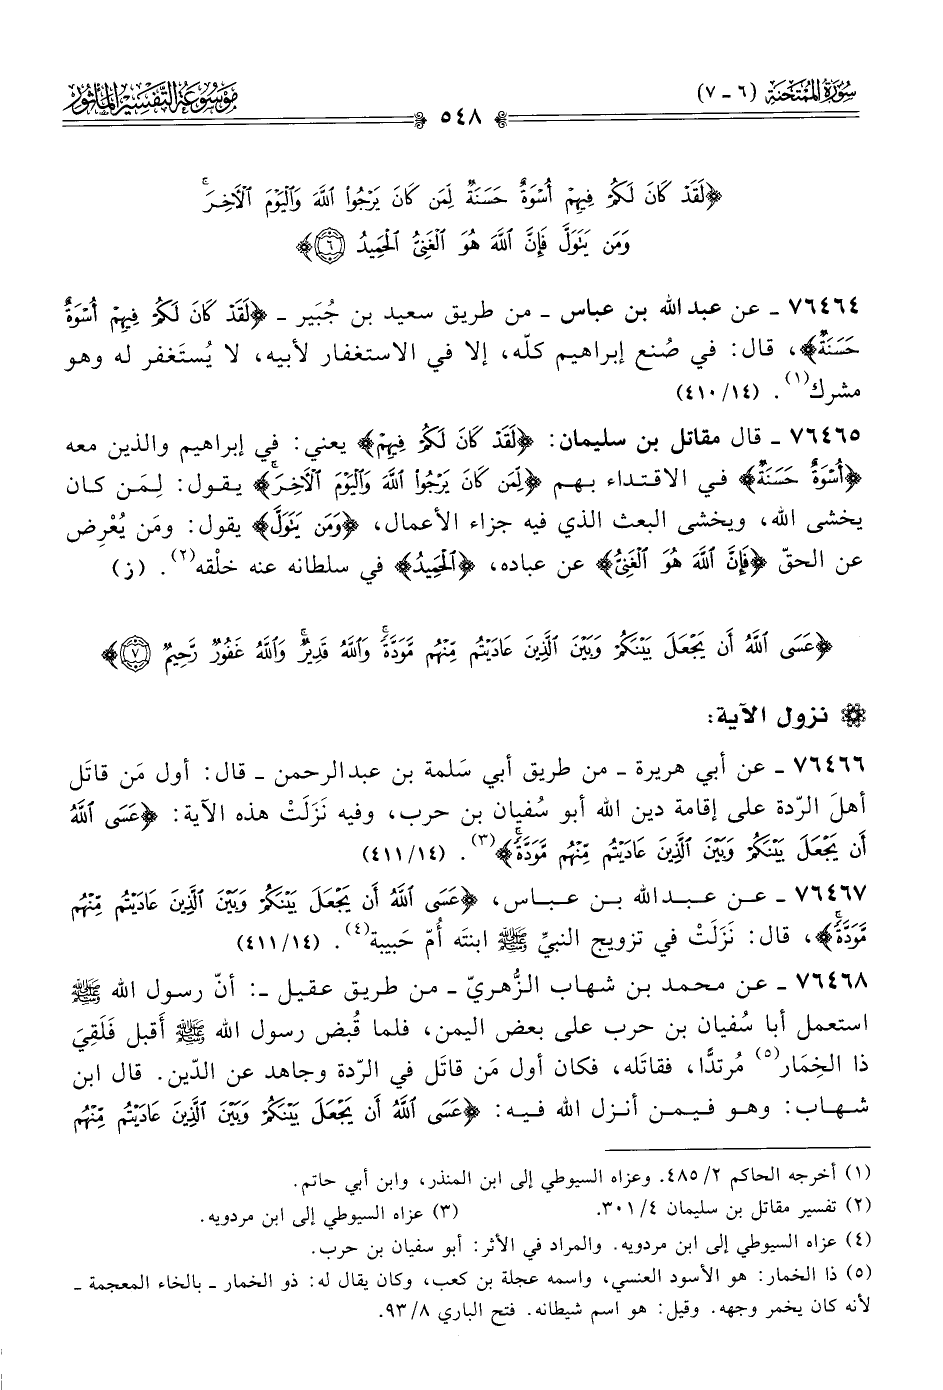 سُورَةُ المُمْتَحنَة (٦ - ٧)
٥٤٨
مَوْسُوعَة التَّفْسِيرِ المَأثُور
﴿لَقَدْ كَانَ لَكُمْ فِيهِمْ أُسْوَةٌ حَسَنَةٌ لِّمَن كَانَ يَرْجُوا۟ ٱللَّهَ وَٱلْيَوْمَ ٱلْـَٔاخِرَ ۚ
وَمَن يَتَوَلَّ فَإِنَّ ٱللَّهَ هُوَ ٱلْغَنِىُّ ٱلْحَمِيدُ ٦﴾
٧٦٤٦٤ ـ عن عبد الله بن عباس ـ من طريق سعيد بن جُبَير ـ ﴿لَقَدْ كَانَ لَكُمْ فِيهِمْ أُسْوَةٌ
حَسَنَةٌ﴾، قال: في صُنع إبراهيم كلّه، إلا في الاستغفار لأبيه، لا يُستَغفر له وهو
مشرك(١). (٤١٠/١٤)
٧٦٤٦٥ ـ قال مقاتل بن سليمان: ﴿لَقَدْ كَانَ لَكُمْ فِيهِمْ﴾ يعني: في إبراهيم والذين معه
﴿أُسْوَةٌ حَسَنَةٌ﴾ في الاقتداء بهم ﴿لِمَن كَانَ يَرْجُوا۟ ٱللَّهَ وَٱلْيَوْمَ ٱلْـَٔاخِرَ ۚ﴾ يقول: لِمَن كان
يخشى الله، ويخشى البعث الذي فيه جزاء الأعمال، ﴿وَمَن يَتَوَلَّ﴾ يقول: ومَن يُعْرِض
عن الحقّ ﴿فَإِنَّ ٱللَّهَ هُوَ ٱلْغَنِىُّ﴾ عن عباده، ﴿ٱلْحَمِيدُ﴾ في سلطانه عنه خلْقه(٢). (ز)
﴿عَسَى ٱللَّهُ أَن يَجْعَلَ بَيْنَكُمْ وَبَيْنَ ٱلَّذِينَ عَادَيْتُم مِّنْهُم مَّوَدَّةً ۚ وَٱللَّهُ قَدِيرٌ ۚ وَٱللَّهُ غَفُورٌ رَّحِيمٌ ٧﴾
نزول الآية:
٧٦٤٦٦ ـ عن أبي هريرة ـ من طريق أبي سَلمة بن عبدالرحمن ـ قال: أول مَن قاتَل
أهلَ الرّدة على إقامة دين الله أبو سُفيان بن حرب، وفيه نَزَلَتْ هذه الآية: ﴿عَسَى ٱللَّهُ
أَن يَجْعَلَ بَيْنَكُمْ وَبَيْنَ ٱلَّذِينَ عَادَيْتُم مِّنْهُم مَّوَدَّةً ۚ﴾(٣). (٤١١/١٤)
٧٦٤٦٧ ـ عن عبدالله بن عباس، ﴿عَسَى ٱللَّهُ أَن يَجْعَلَ بَيْنَكُمْ وَبَيْنَ ٱلَّذِينَ عَادَيْتُم مِّنْهُم
مَّوَدَّةً ۚ﴾، قال: نَزَلَتْ في تزويج النبيِّ ﷺ ابنتَه أُمّ حَبيبة(٤). (٤١١/١٤)
٧٦٤٦٨ ـ عن محمد بن شهاب الزُّهريّ ـ من طريق عقيل ـ: أنّ رسول الله ﷺ
استعمل أبا سُفيان بن حرب على بعض اليمن، فلما قُبض رسول الله ﷺ أَقبل فَلَقِيَ
ذا الخِمَار(٥) مُرتدًّا، فقاتَله، فكان أول مَن قاتَل في الردة وجاهد عن الدّين. قال ابن
شهاب: وهو فيمن أنزل الله فيه: ﴿عَسَى ٱللَّهُ أَن يَجْعَلَ بَيْنَكُمْ وَبَيْنَ ٱلَّذِينَ عَادَيْتُم مِّنْهُم
(١) أخرجه الحاكم ٢/ ٤٨٥. وعزاه السيوطي إلى ابن المنذر، وابن أبي حاتم.
(٢) تفسير مقاتل بن سليمان ٤/ ٣٠١. (٣) عزاه السيوطي إلى ابن مردويه.
(٤) عزاه السيوطي إلى ابن مردويه. والمراد في الأثر: أبو سفيان بن حرب.
(٥) ذا الخمار: هو الأسود العنسي، واسمه عجلة بن كعب، وكان يقال له: ذو الخمار ـ بالخاء المعجمة ـ
لأنه كان يخمر وجهه. وقيل: هو اسم شيطانه. فتح الباري ٨/ ٩٣.